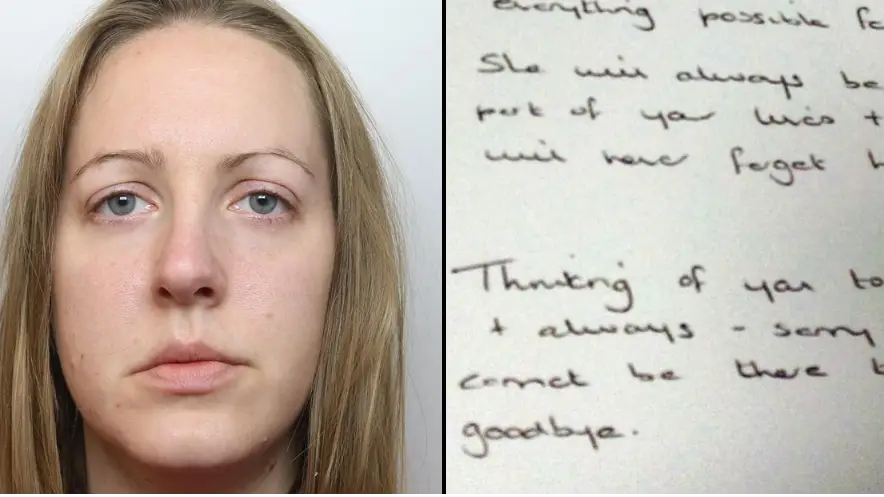 everything possible fo
She will always be
part of your lives +
will never forget h
Thinking of you to
+ always - sorry
cannot be there t
goodbye.